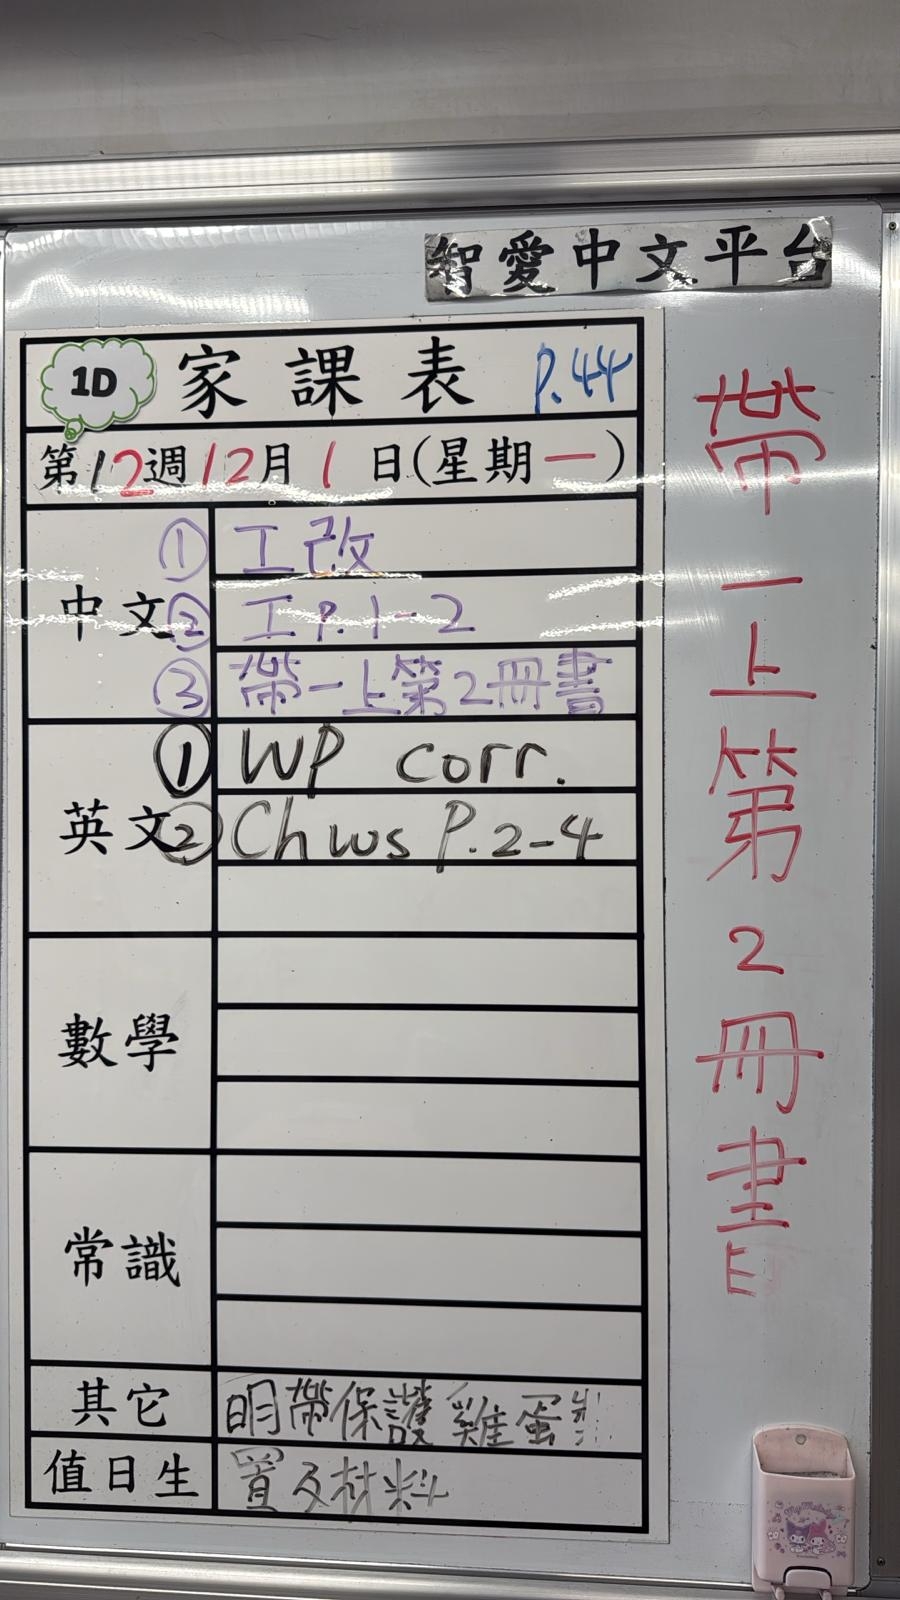 智愛中文平台
1D 家課表 P.44
第12週12月1日(星期一)
中文
① 工改
② 工P.1-2
③ 帶一上第2冊書
英文
① WP corr.
② Ch ws P.2-4
數學
常識
其它 明帶保護雞蛋
值日生 置及材料
帶一上第2冊書